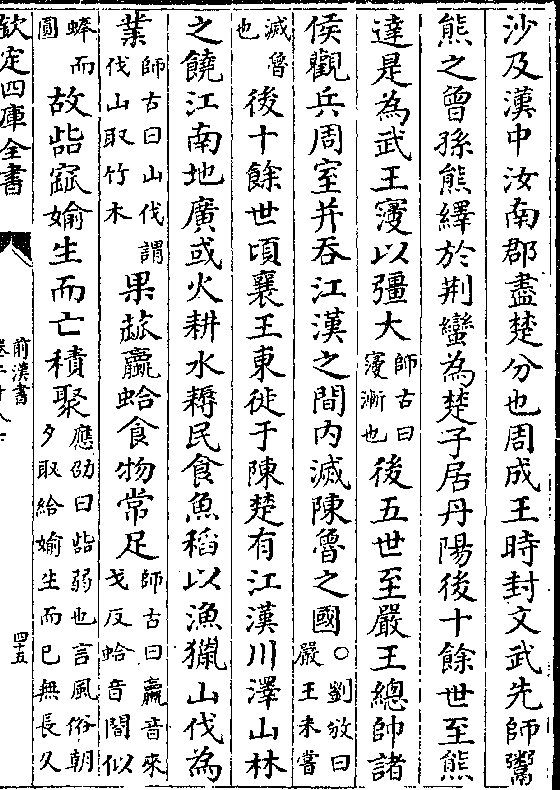 沙及漢中汝南郡盡楚分也周成王時封文武先師鬻
熊之曾孫熊繹於荆蠻為楚子居丹陽後十餘世至熊
達是為武王寖以彊大師古曰寖漸也後五世至嚴王總帥諸
侯觀兵周室并吞江漢之間内滅陳魯之國○劉攽曰嚴王未嘗
滅魯也後十餘世頃襄王東徙于陳楚有江漢川澤山林
之饒江南地廣或火耕水耨民食魚稻以漁獵山伐為
業師古曰山伐謂伐山取竹木果蓏蠃蛤食物常足師古曰蠃音來戈反蛤音閤似
蜯而圓故呰窳媮生而亡積聚應劭曰呰弱也言風俗朝夕取給媮生而已無長久
欽定四庫全書
前漢書
四十五